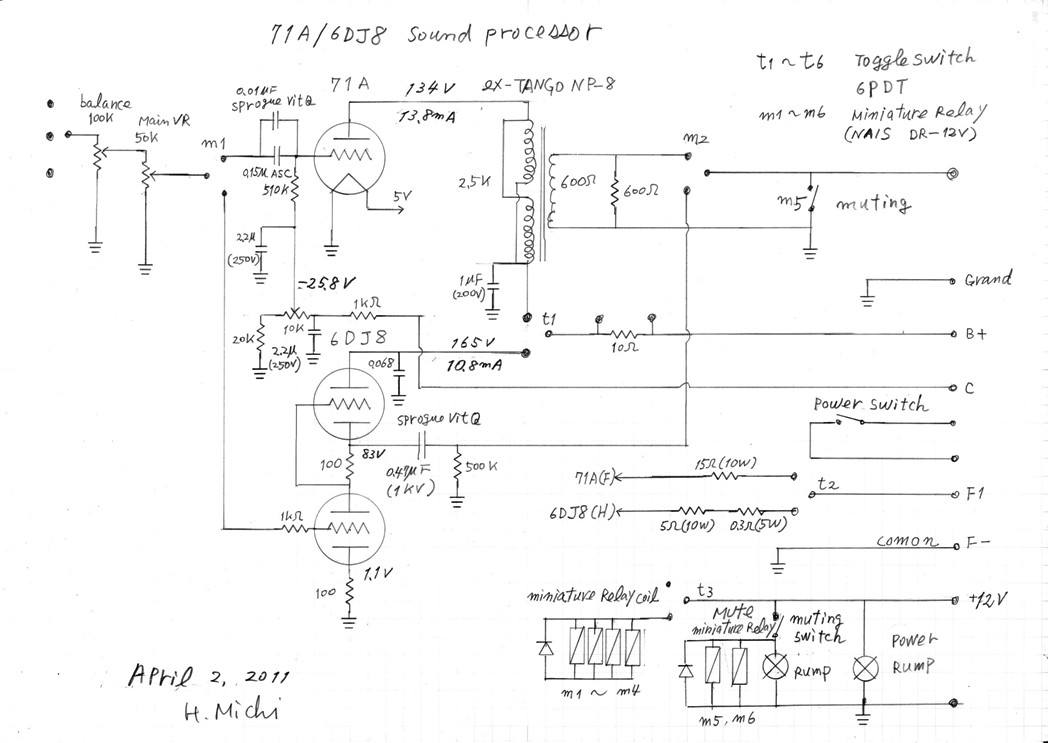 71A/6DJ8 Sound processor
t1~t6 Toggle Switch
6PDT
m1~m6 Miniature Relay
(NAIS DR-12V)
balance
100K
Main VR
50K
m1
0.01μF
Sprogue Vit Q
71A
134V
13.8mA
ex-TANGO NP-8
0.15μ ASC
510K
5V
2.5K
600Ω
600Ω
m2
m5
muting
2.2μ
(250V)
-25.8V
1μF
(200V)
Grand
20K
10K
2.2μ
(250V)
1KΩ
6DJ8
165V
10.8mA
t1
10Ω
B+
0.068
C
Sprogue Vit Q
0.47μF
(1KV)
500K
83V
100
1KΩ
1.1V
100
Power Switch
71A(F)
15Ω(10W)
t2
F1
6DJ8(H)
5Ω(10W)
0.3Ω(5W)
comon
F-
miniature Relay coil
t3
+12V
m1 ~ m4
Mute
miniature Relay
muting
switch
Rump
Power
Rump
m5, m6
April 2, 2011
H. Michi